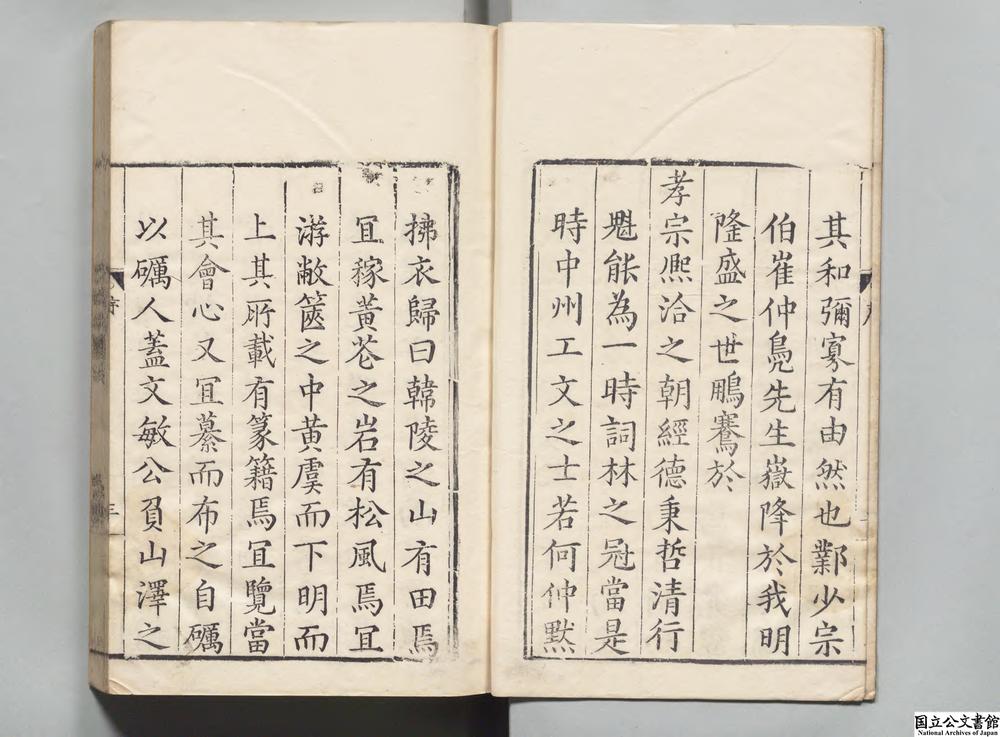 其和彌寡有由然也鄴少宗
伯崔仲鳧先生嶽降於我明
隆盛之世鵬騫於
孝宗熈洽之朝經德秉哲清行
覣能為一時詞林之冠當是
時中州工文之士若何仲默
拂衣歸曰韓陵之山有田焉
冝稼黄芲之岩有松風焉冝
游敝篋之中黄虞而下明而
上其所載有篆籍焉冝覽當
其會心又冝纂而布之自礪
以礪人蓋文敏公負山澤之
序
三
国立公文書館
National Archives of Japan